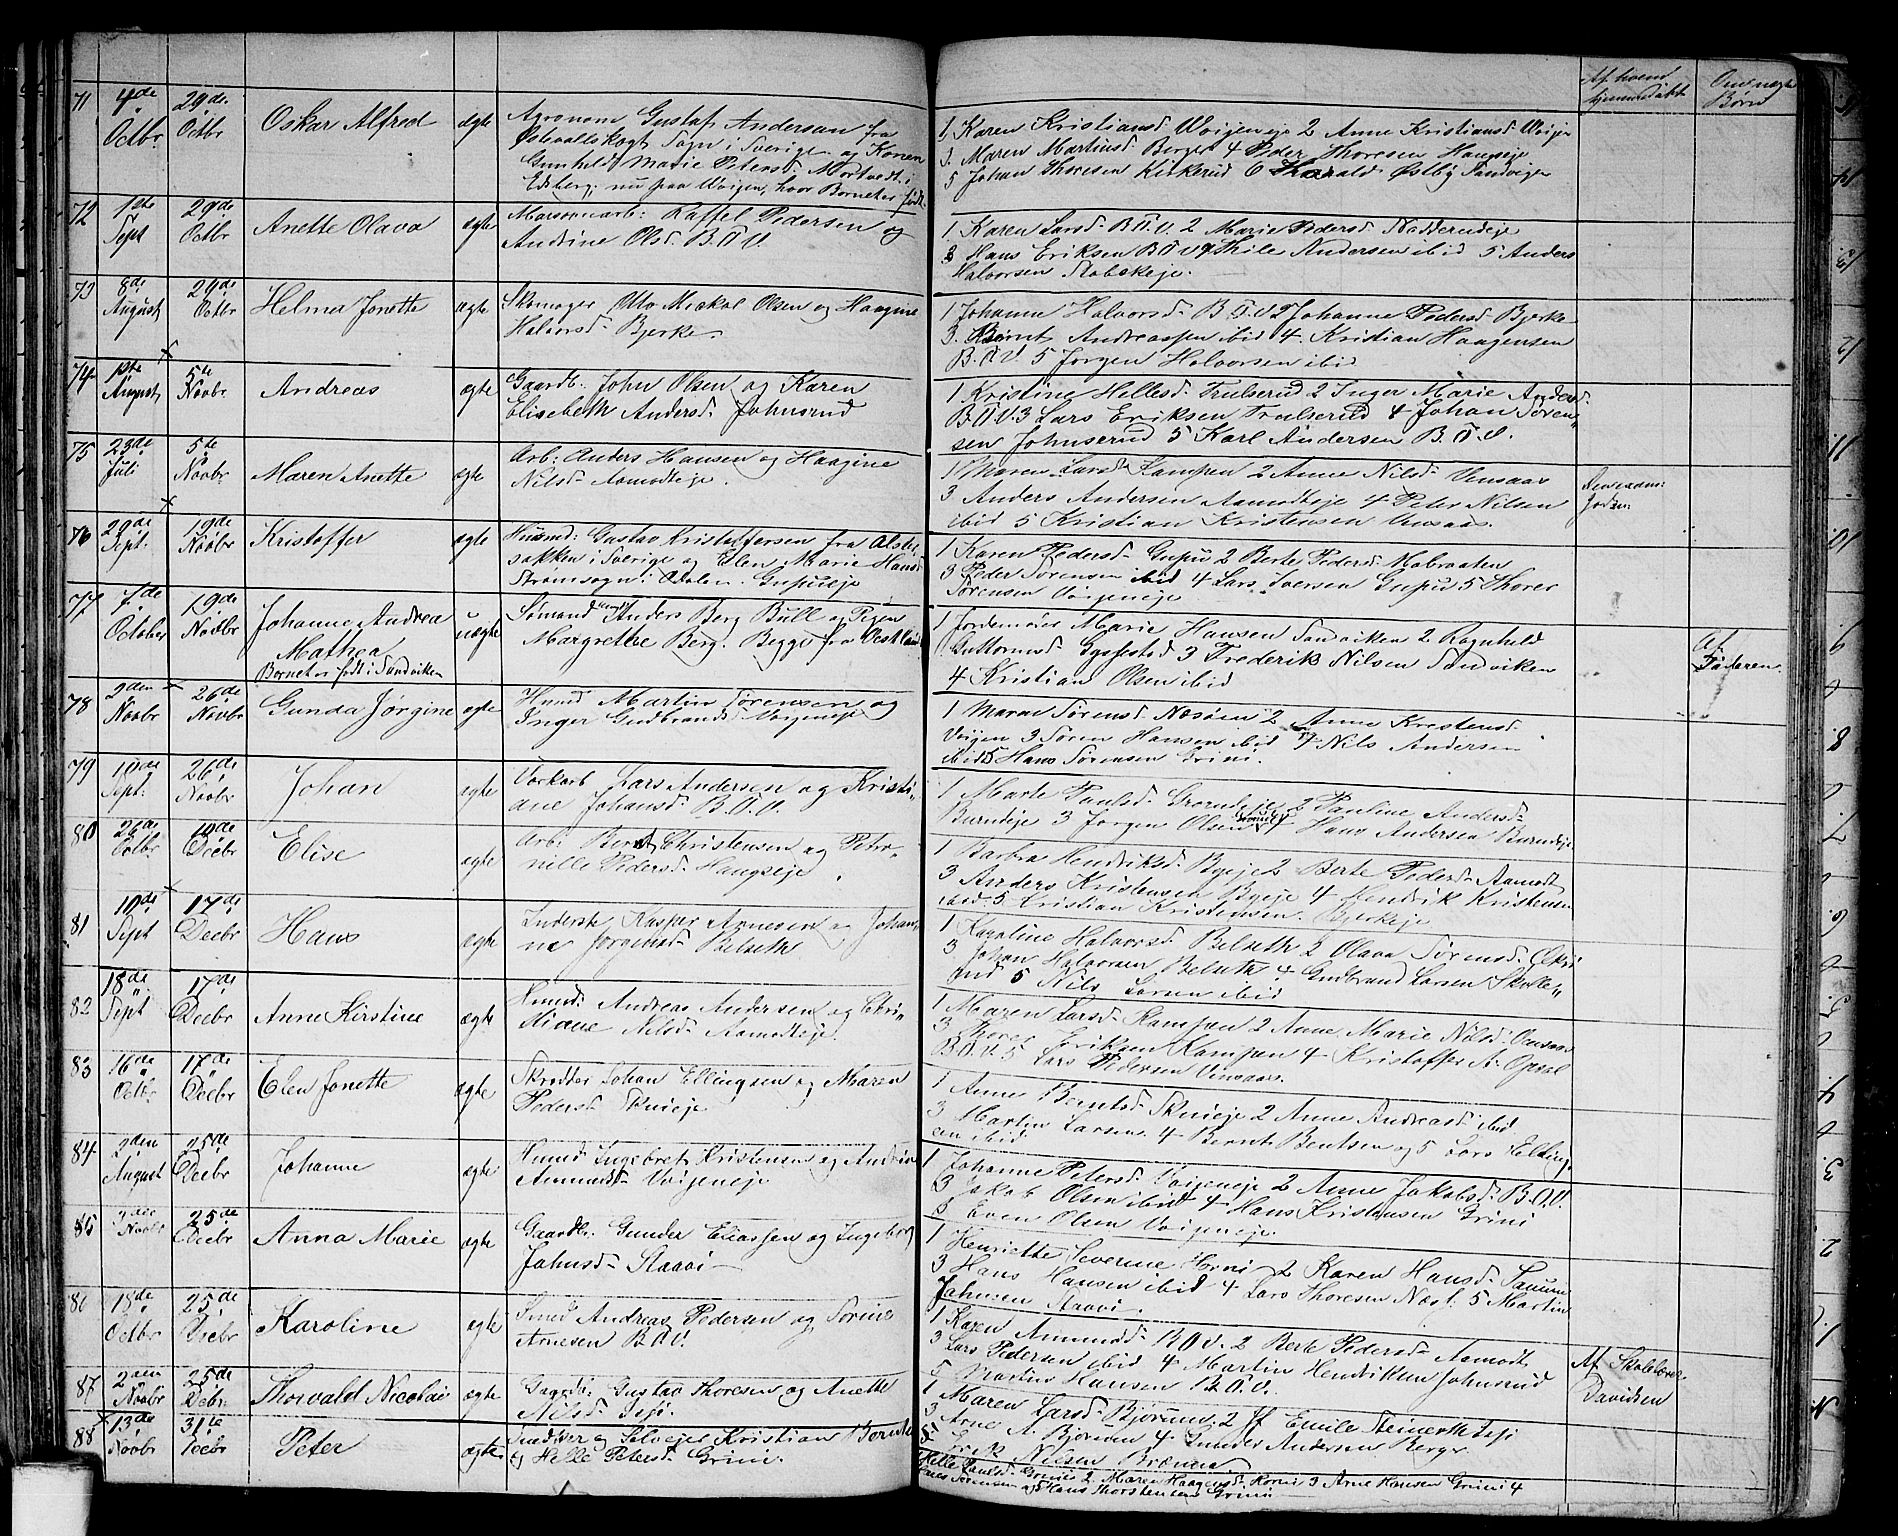 Af hvem hjemmedøbt
Børn
71 4de Octbr. 29de Octbr Oskar Alfred ægte Agronom Gustaf Anderson fra
Østevallskogs Sogn i Sverige og Konen
Gunhild Marie Petersd. Mortvedt i
Edsberg: nu paa Voigen, hvor Barnet er født.
1 Karen Kristiansd. Voigeneje 2 Anne Kristiansd Voigen
3. Maren Martinsd Berger 4 Peder Thoresen Haugseje
5 Johan Thoresen Kirkerud 6 Tharald Østby Sandvigen
72 1ste Sept 29de Octbr Anette Olava ægte Kaffel Pedersen og
Andrine Olsd. B.O.V.
1 Karen Larsd B.O.V. 2 Marie Pedersd Nadderudeje
3 Hans Eriksen B O V 4 Thile Andersen ibid 5 Anders
Halvorsen Stabekeje.
73 8de August 29de Octbr Helma Jonette ægte Skomager Otto Mickal Olsen og Haagine
Halvorsd- Bjerke.
1 Johanne Halvorsd- B O V 2 Johanne Pedersd- Bjerke
3. Bernt Andreassen ibid 4 Kristian Haagensen
B.O.V. 5 Jørgen Halvorsen ibid
74 1ste August 5te Novbr Andreas ægte Gaardb. John Olsen og Karen
Elisebeth Andersd. Johnsrud
1 Kristine Hellesd. Trulserud 2 Inger Marie Andersd.
B.O.V. 3 Lars Eriksen Trulserud 4 Johan Søren„
sen Johnserud 5 Karl Andersen B.O.V.
75 23de Juli 5te Novbr Maren Anette ægte Arb: Anders Hansen og Haagine
Nilsd- Aamodteje.
1 Maren Larsd Kampen 2 Anne Nilsd- Vensaas
3 Anders Andersen Aamodteje 4 Peter Nilsen
ibid 5 Kristian Kristensen Vensaas.
76 29de Sept: 19de Novbr Kristoffer ægte Husmd: Gustav Kristoffersen fra Alster
sokken i Sverige og Elen Marie Hansd
Strømsogn i Odalen. Gupueje
1 Karen Pedersd- Gupu 2 Berte Pedersd- Mabraaten
3 Peder Sørensen ibid 4 Lars Iversen Gupu 5 Thorer
Sørensen Voigeneje
77 7de October 19de Novbr Johanne Andrea
Mathea
Barnet er født i Sandviken
uægte Sømand Anders Berg Bull og Pigen
Margrethe Berg. Begge fra Vestlandet
1 Jordemoder Marie Hansen Sandviken 2. Ragnhild
Guttormsd- Gyssestad 3 Frederik Nilsen Sandviken
4 Kristian Olsen ibid
af Faderen
78 2den Novbr 26de Novbr Gunda Jørgine ægte Husmd Martin Sørensen og
Inger Gudbrandsd. Voigeneje
1 Maren Sørensd. Nesøien 2 Anne Kristensd-
Voigen 3 Søren Hansen ibid 4 Nils Andersen
ibid 5 Hans Sørensen Grini.
79 10de Sept: 26de Novbr Johan ægte Værkarb Lars Andersen og Kristi„
ane Johansd. B.O.V.
1 Marte Paulsd- 2 Pauline Andersd-
Burudeje 3 Jørgen Olsen 4 Hans Andersen Burudeje
80 26de Octbr 10de Decbr Elise ægte Arb: Bernt Christensen og Petro-
nille Pedersd- Haugseje.
1 Barbra Hendriksd. Byeje 2 Berte Pedersd- Aamodt
3 Anders Kristensen Byeje 4 Hendrik Kristensen
ibid 5 Kristian Kristensen. Bjerkeje
81 10de Sept 17de Decbr Hans ægte Inderste Kasper Arnesen og Johan„
ne Jørgensd- Belseth
1 Karoline Halvorsd- Belseth 2 Olava Sørensd-
3 Johan Halvorsen Belseth 4 Gudbrand Larsen
5 Nils Larsen ibid
82 18de Sept 17de Decbr Anne Kirstine ægte Husmd: Andreas Andersen og Chri„
stiane Nilsd- Aamodteje.
1 Maren Larsd- Kampen 2 Anne Marie Nilsd- Vensaas
3 Thorer Eriksen Kampen 4 Kristoffer A. Opsal
B.O.V. 5 Lars Pedersen Vensaas.
83 16de Octbr 17de Decbr Elen Jonette ægte Skredder Johan Ellingsen og Maren
Pedersd. Skuieje
1 Anne Berntsd- Skuieje 2 Anne Andreasd- ibid
3 Martin Larsen. 4 Bernt Bentsen og 5 Lars Ellings„
en ibid
84 2den August 25de Decbr Johanne ægte Husmd Ingebret Kristensen og Andrine
Ammundsd- Voigeneje
1 Johanne Petersd- Voigeneje 2 Anne Jakobsd- B.O.V.
3 Jakob Olsen ibid 4 Hans Kristensen Grini
5 Even Olsen Voigeneje.
85 2den Novbr 25de Decbr Anna Marie ægte Gaardb. Gunder Eliassen og Ingeborg
Johnsd- Staavi-
1 Henriette Severine Horni 2 Karen Hansd-
3 Hans Hansen ibid 4 Lars Thoresen Næsb. 5 Martin
Johnsen Staavi.
86 18de Octbr 25de Decbr Karoline ægte Smed Andreas Pedersen og Sørine
Arnesen B.O.V.
1 Karen Ammundsd- B.O.V. 2 Berte Pedersd- Aamodt
3 Lars Pedersen ibid 4 Martin Hendriksen Johnsrud
5 Martin Hansen B.O.V.
Af Skolelærer
Davidsen
87 2den Novbr 25de Decbr. Thorvald Nicolai ægte Gaardb. Gustav Thoresen og Anette
Nilsd.
1 Maren Larsd- Bjørum. 2 Emilie
3 Arne A. Bjørum 4 Gunder Andersen Berger
5 Erik Nilsen Brænna
88 13de Novbr 31te Decbr Peter ægte Snedker og Selvejer Kristian Bernts
og Helle Petersd. Grini.
Helle Paulsd. Grinis 2. Maren Haagensd. Horni 3 Arne Hansen Grini 4
Sørensen og 5 Hans Thorstensen Grini